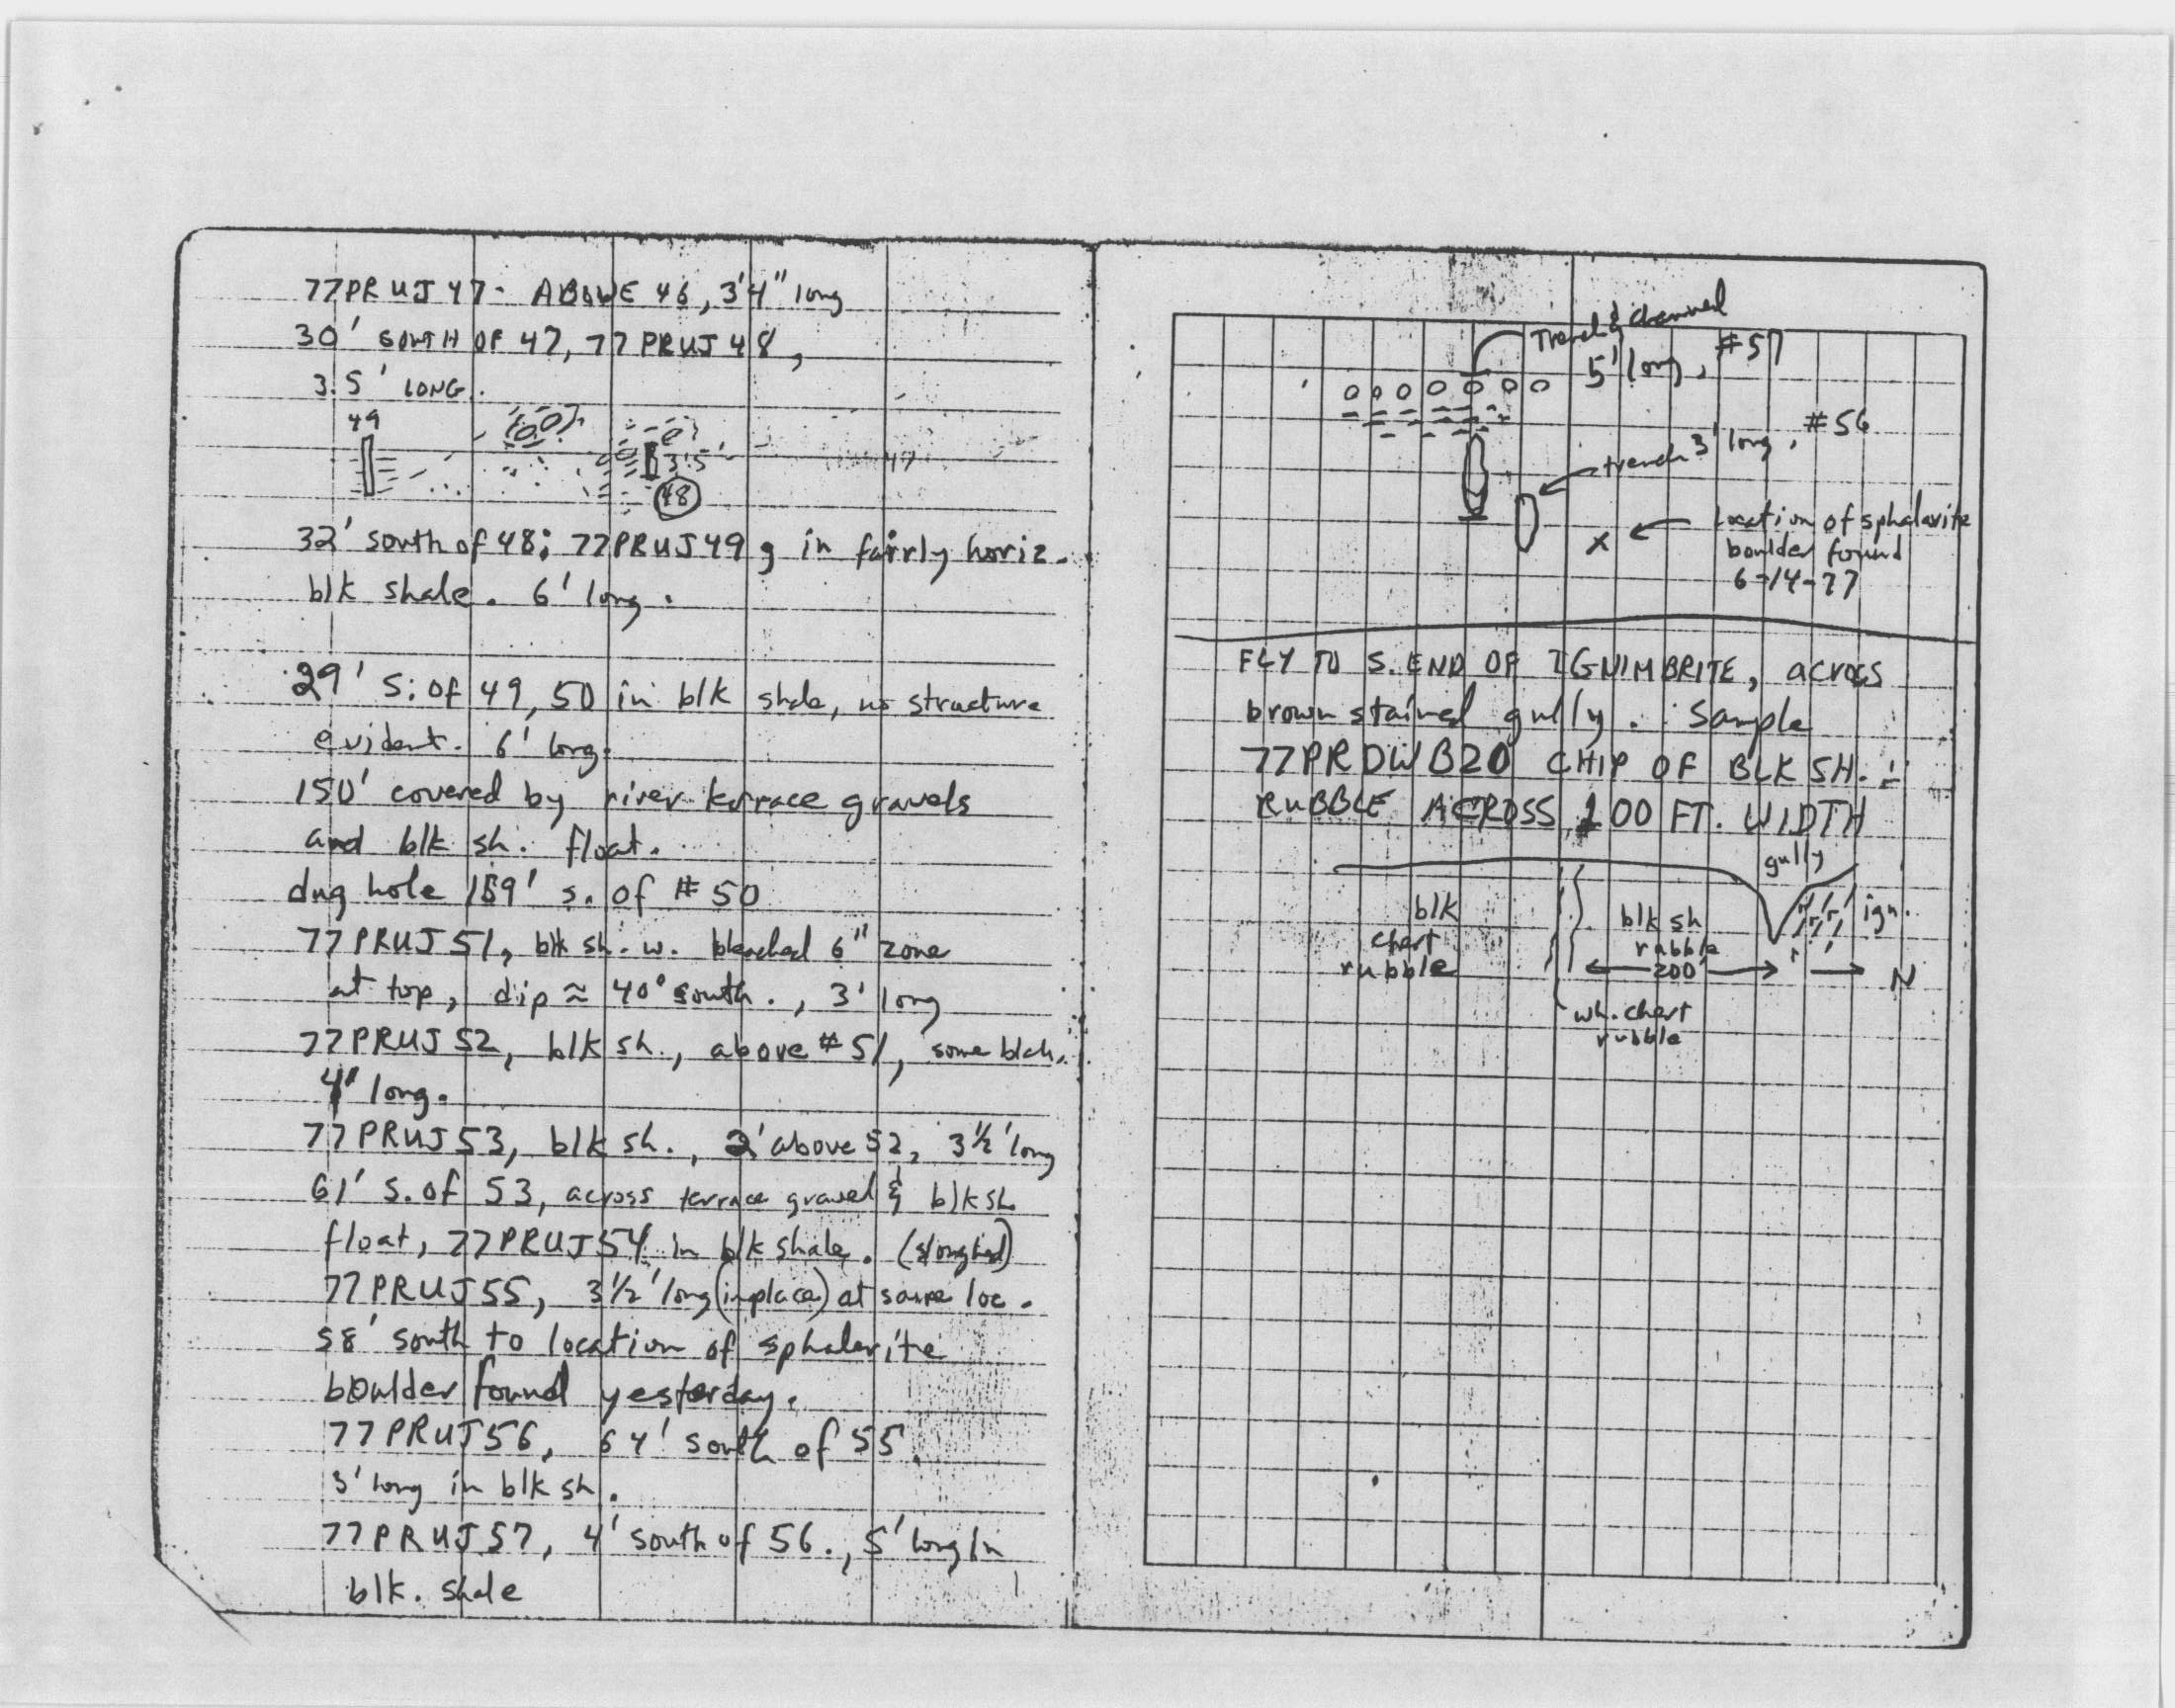 77PRUJ47- ABOVE 46, 3'4" long
30' SOUTH OF 47, 77PRUJ48,
3.5' LONG.
49
3.5'
47
48
32' south of 48; 77PRUJ49, in fairly horiz.
blk shale. 6' long.
29' S. of 49, 50 in blk shale, no structure
evident. 6' long.
150' covered by river terrace gravels
and blk sh. float.
dug hole 159' s. of #50
77PRUJ51, blk sh. w. bleached 6" zone
at top, dip ≈ 40° south., 3' long
77PRUJ52, blk sh., above #51, some blch.
4' long.
77PRUJ53, blk sh., 2' above 52, 3½' long
61' S. of 53, across terrace gravel & blk sh
float, 77PRUJ54 in blk shale. (sloughed)
77PRUJ55, 3½' long (inplace) at same loc.
58' south to location of sphalerite
boulder found yesterday.
77PRUJ56, 64' south of 55.
3' long in blk sh.
77PRUJ57, 4' south of 56., 5' long in
blk. shale
Trench & channel
5' long, #57
#56
trench 3' long,
X ← location of sphalerite
boulder found
6-14-77
FLY TO S. END OF IGNIMBRITE, across
brown stained gully. Sample
77PRDWB20 CHIP OF BLK SH.
RUBBLE ACROSS 200 FT. WIDTH
gully
blk
chert
rubble
blk sh
rubble
ign.
200'
N
wh. chert
rubble